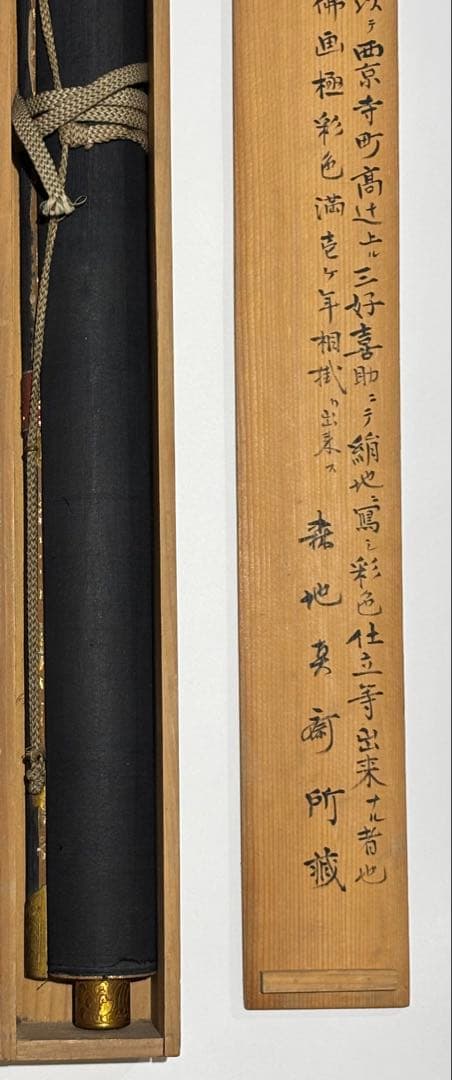 テ西京寺町高辻上ル三好喜助ニテ絹地ニ寫シ彩色仕立等出来ナル者也
佛画極彩色満壱ケ年相掛リ出来ス
森地真斎所蔵